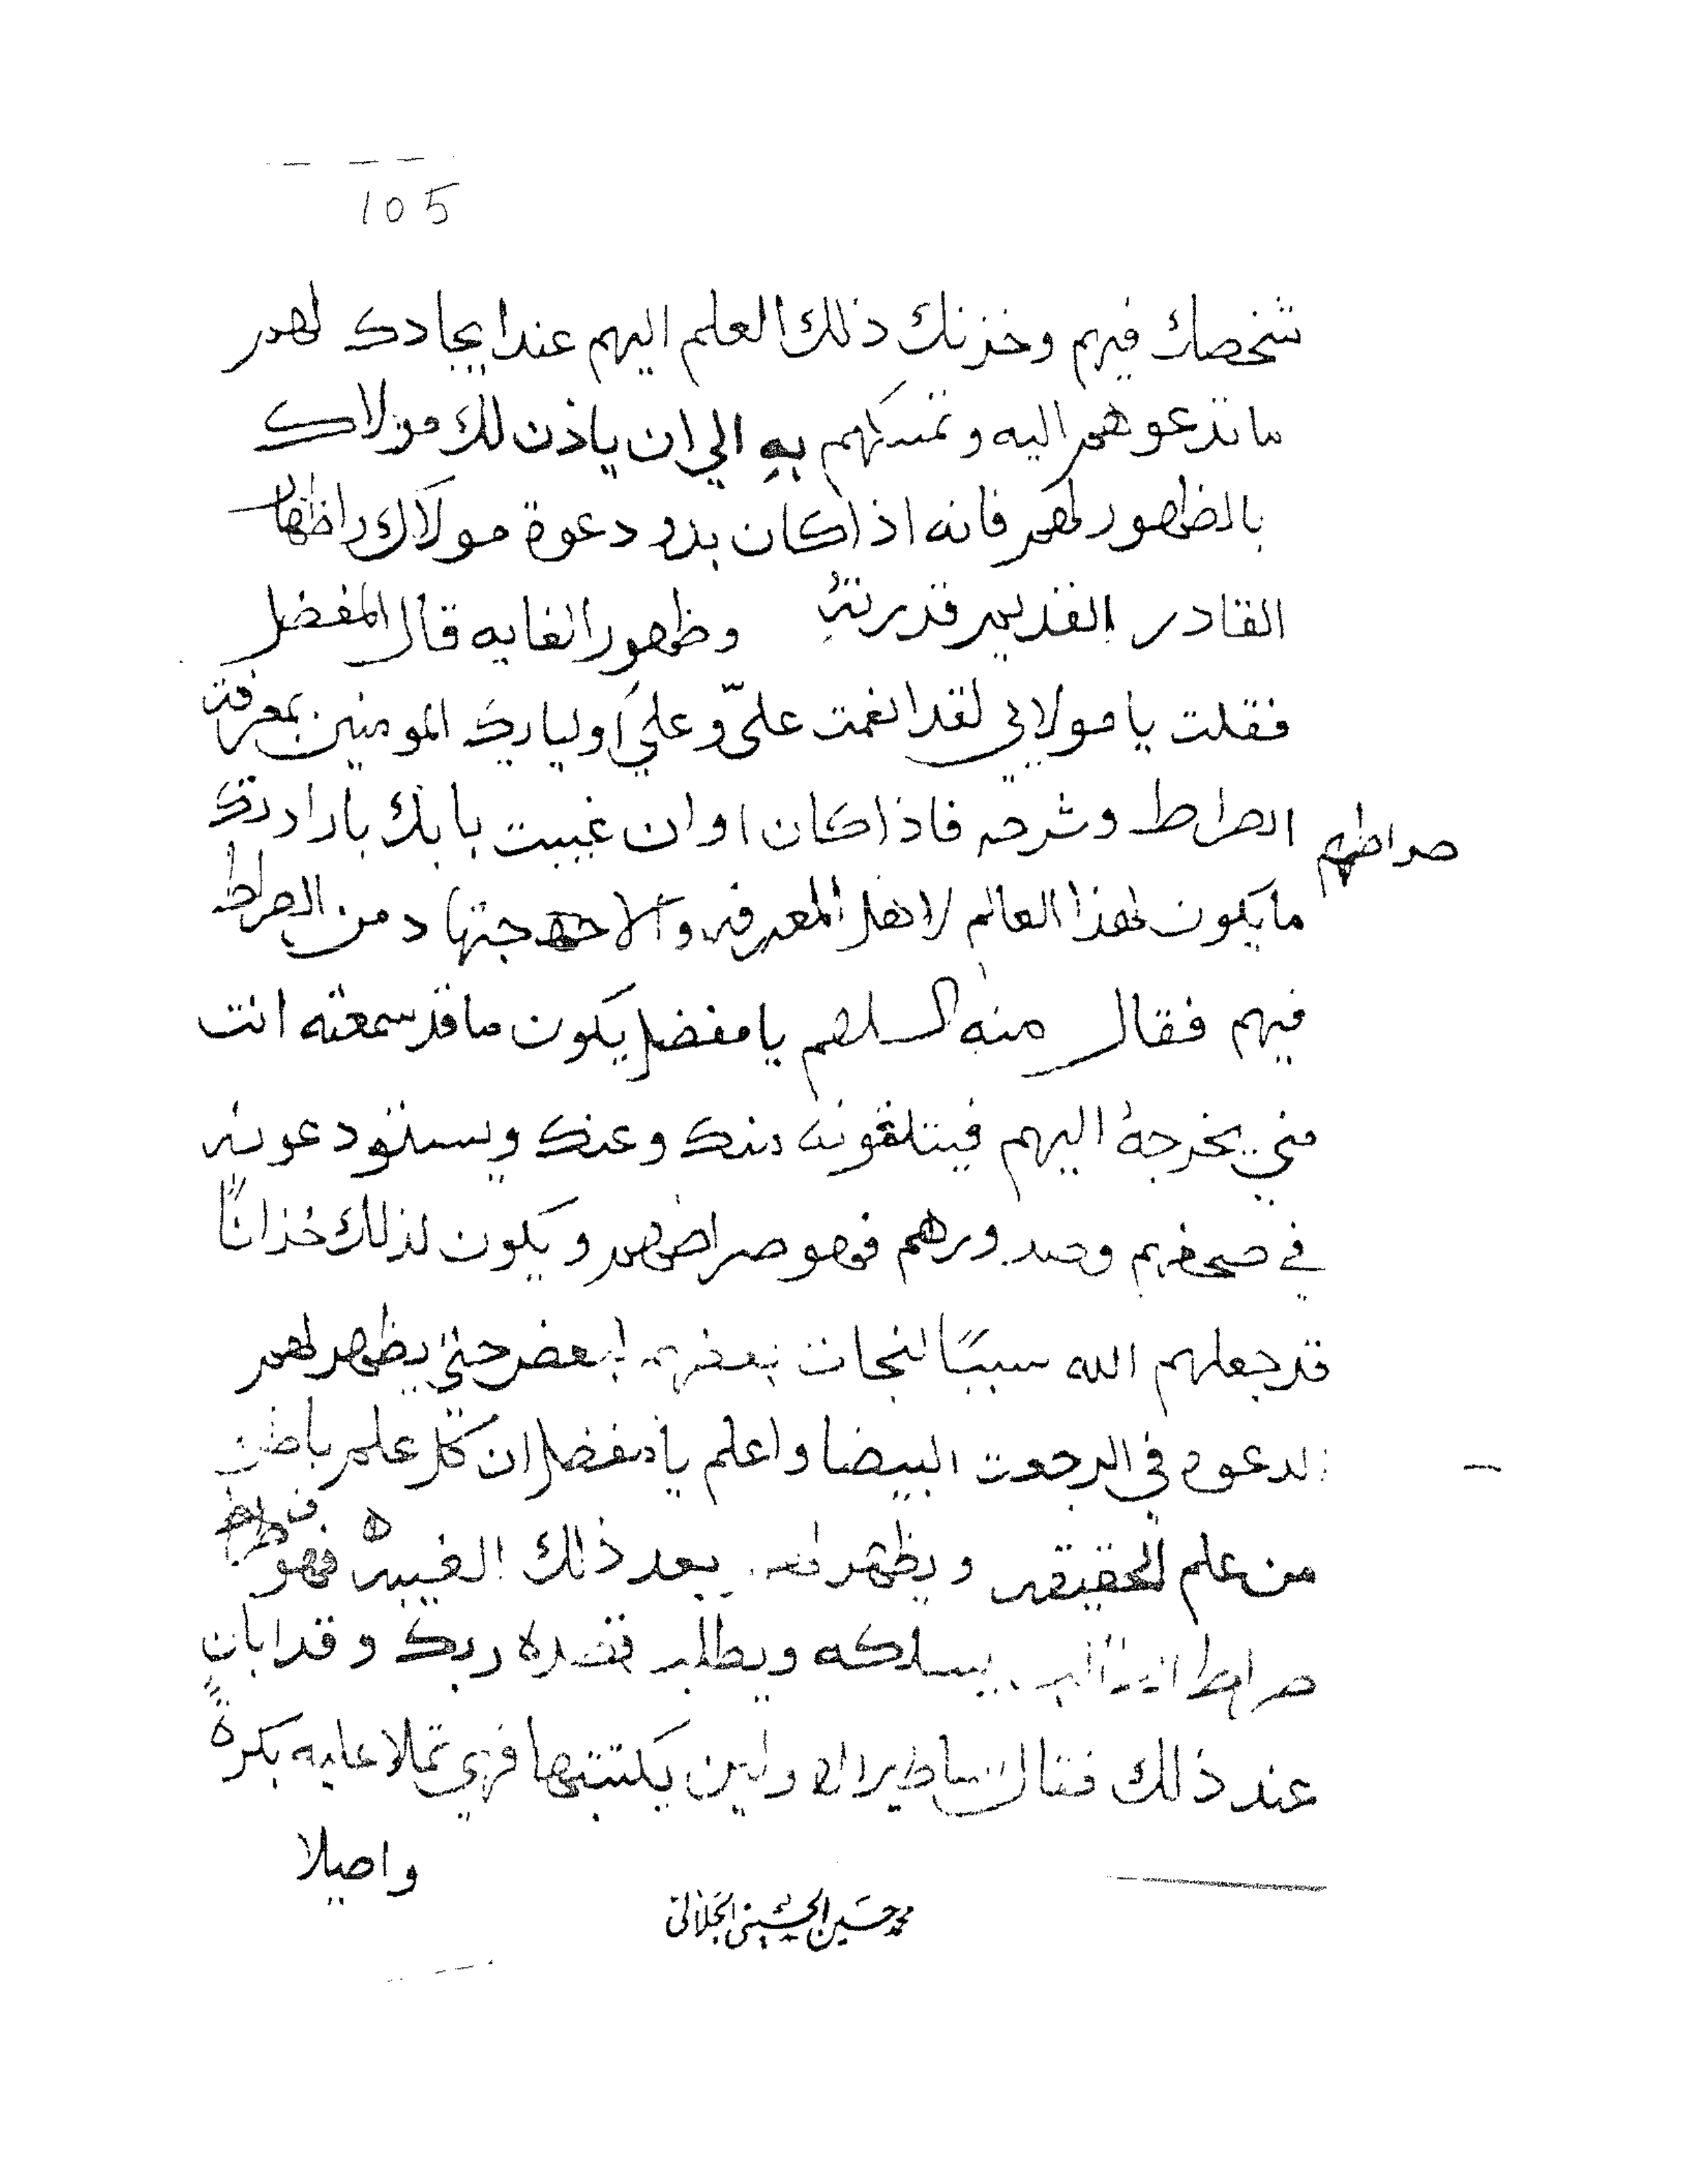 105
شخصك فيهم وخزنك ذلك العلم اليهم عند ايجادك لهم
ما تدعوهم اليه وتمسكهم به الي ان ياذن لك مولاك
بالظهور لهم فانه اذا كان بدو دعوة مولاك واظهار
القادر القديم قدرته وظهور الغايه قال المفضل
فقلت يا مولاي لقد انعمت عليّ وعلي اوليايك المومنين بمعرفة
الصراط وشرحه فاذا كان اوان غيبت بابك بارادتك
صراطهم
ما يكون لهذا العالم لاهل المعرفه و من الصراط
فيهم فقال منه السلام يا مفضل يكون ما قد سمعته انت
مني يخرجهُ اليهم فيتلقونه منك وعنك ويستودعونه
في صحفهم وصدورهم فهو صراطهم ويكون لذلك خزاناً
قد جعلهم الله سبباً لنجات بعضهم لبعض حتي يظهر لهم
الدعوه في الرجعت البيضا واعلم يا مفضل ان كل علم باطن
من علم الحقيقه ويظهر بعد ذلك الغيبه فهو
صراط يسلكه ويطلب قصده ربك وقد ابان
عند ذلك فقال اساطير الاولين يكتتبها فهي تملا عليه بكرةً
واصيلا
محمد حسين الحسيني الجلالي